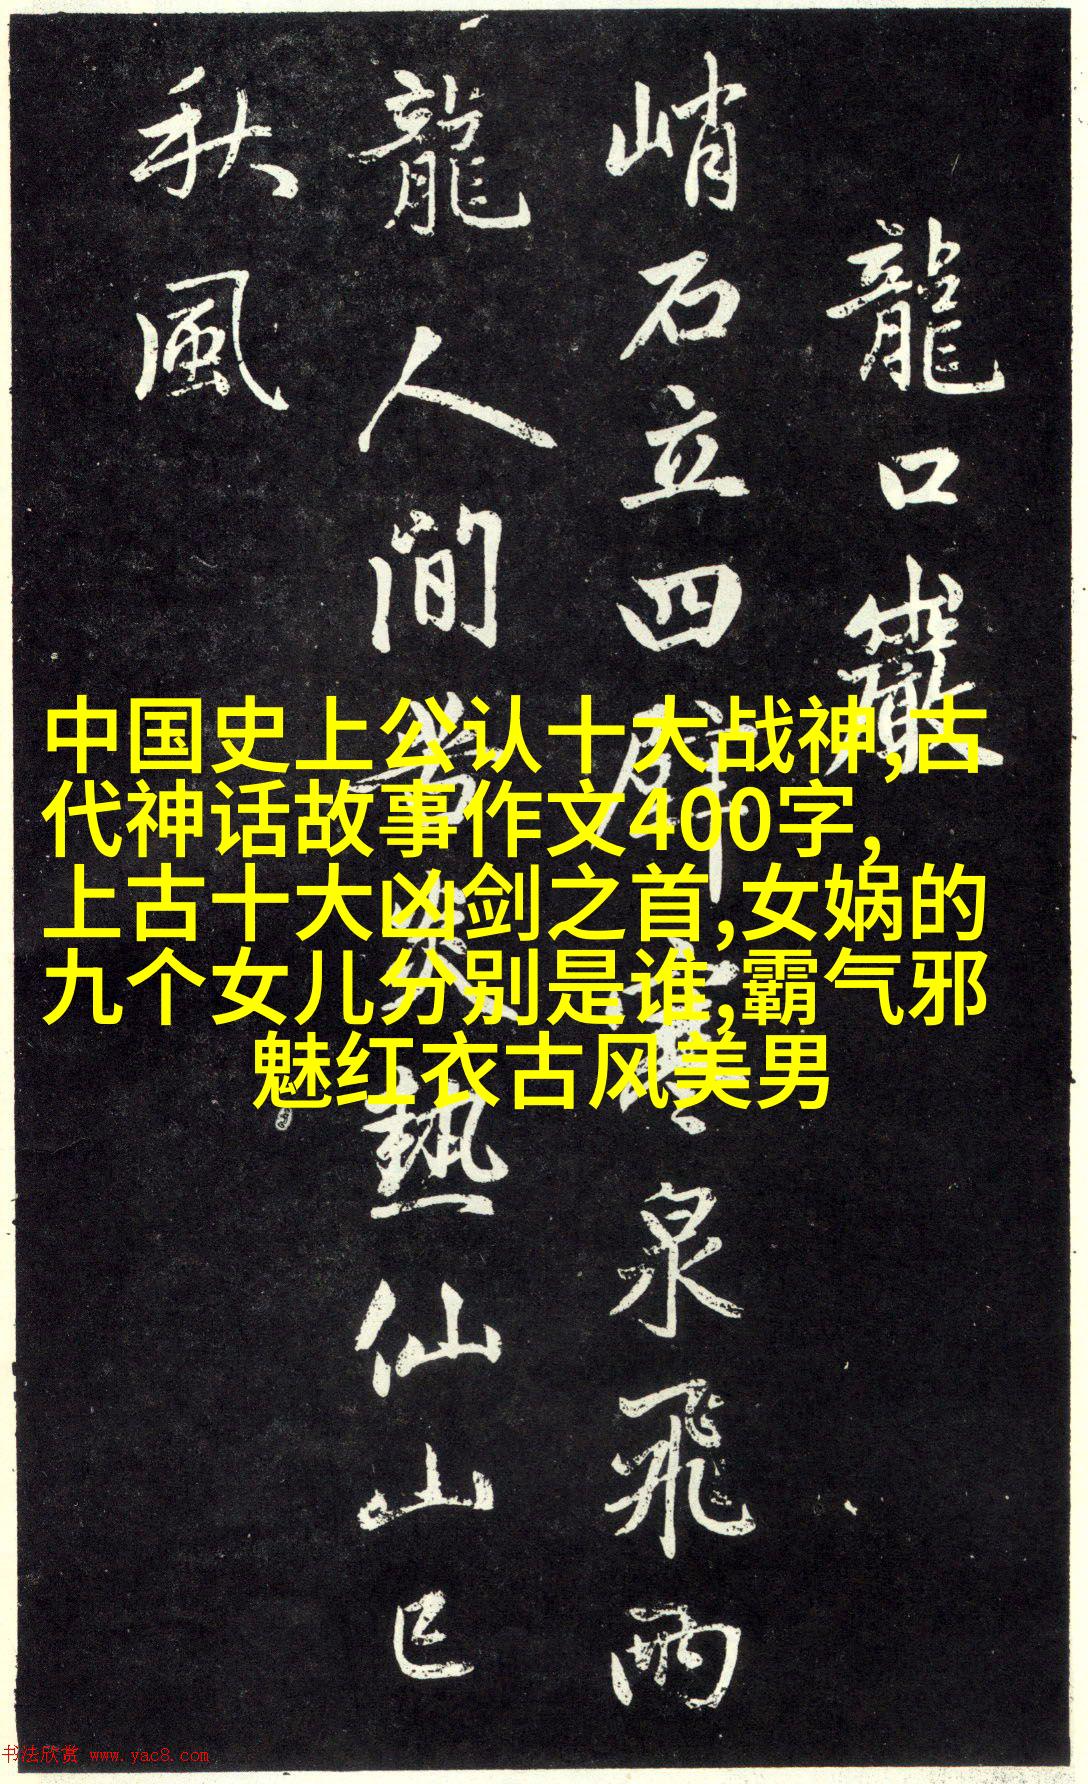 龍口巖
峭石立四壁寒泉飛兩
龍人間苦炎熱仙山已
秋風
中国史上公认十大战神,古
代神话故事作文400字,
上古十大凶剑之首,女娲的
九个女儿分别是谁,霸气邪
魅红衣古风美男
书法欣赏 www.yac8.com